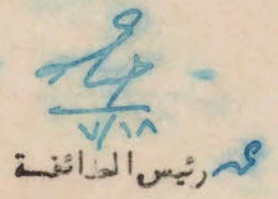 ٧/١٨
عن رئيس الطائفة